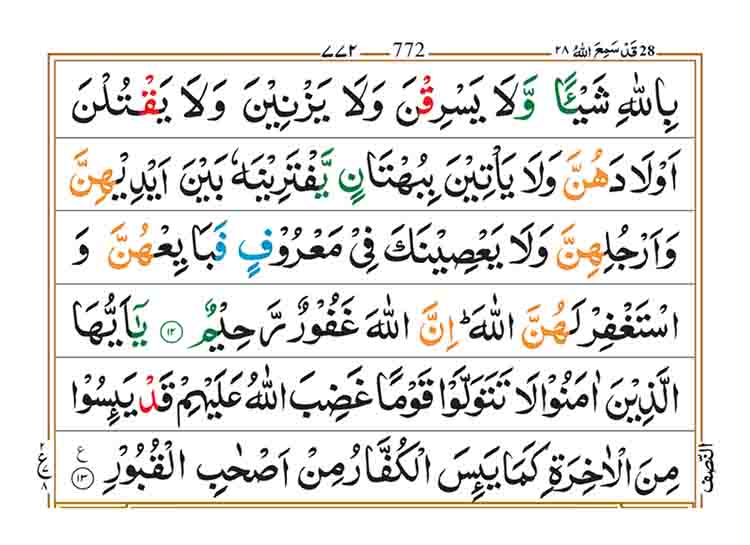 28 قَدْ سَمِعَ اللّٰهُ ٢٨ 772 ٧٧٢
بِاللّٰهِ شَيْـًٔا وَّلَا يَسْرِقْنَ وَلَا يَزْنِيْنَ وَلَا يَقْتُلْنَ
اَوْلَادَهُنَّ وَلَا يَاْتِيْنَ بِبُهْتَانٍ يَّفْتَرِيْنَهٗ بَيْنَ اَيْدِيْهِنَّ
وَاَرْجُلِهِنَّ وَلَا يَعْصِيْنَكَ فِيْ مَعْرُوْفٍ فَبَايِعْهُنَّ وَ
اسْتَغْفِرْ لَهُنَّ اللّٰهَ ؕ اِنَّ اللّٰهَ غَفُوْرٌ رَّحِيْمٌ ١٢ يٰۤاَيُّهَا
الَّذِيْنَ اٰمَنُوْا لَا تَتَوَلَّوْا قَوْمًا غَضِبَ اللّٰهُ عَلَيْهِمْ قَدْ يَىِٕسُوْا
مِنَ الْاٰخِرَةِ كَمَا يَىِٕسَ الْكُفَّارُ مِنْ اَصْحٰبِ الْقُبُوْرِ ١٣ ع
النصف
٢
ع
٨